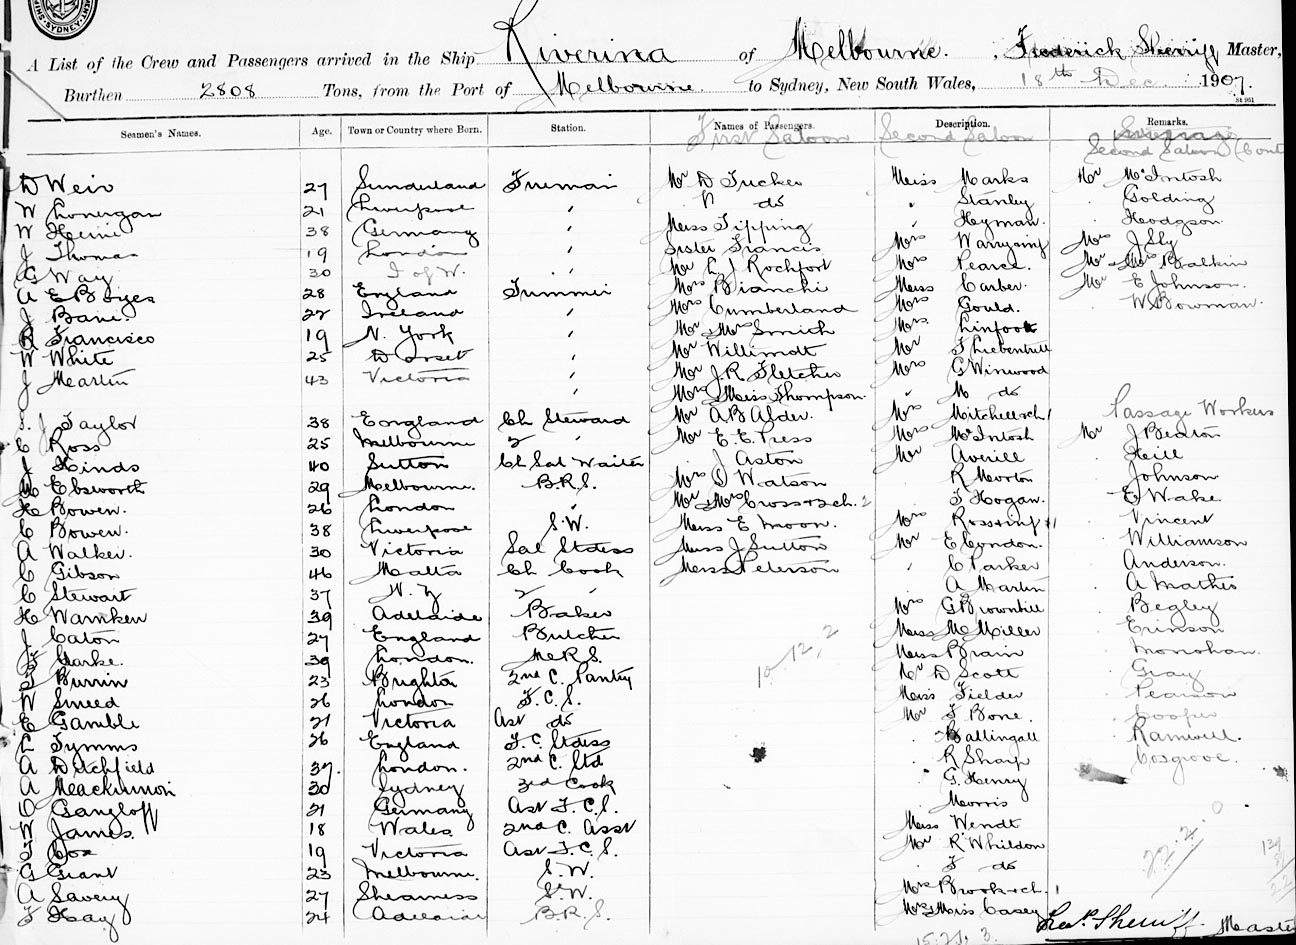 SYDNEY
Riverina of Melbourne. , Frederick Sherriff Master,
A List of the Crew and Passengers arrived in the Ship
Burthen 2808 Tons, from the Port of Melbourne to Sydney, New South Wales, 18th Dec. 1907.
Seamen's Names. Age. Town or Country where Born. Station. Names of Passengers. Description. Remarks.
First Saloon Second Saloon Steerage
Second Saloon (Cont
D Weir 27 Sunderland Fireman Mr D Tucker Miss Marks Mr McIntosh
W Lonergan 21 Liverpool " " do " Stanley Golding
W Heine 38 Germany " Miss Tipping " Heyman Hodgson
J Thomas 19 London " Sister Francis Mrs Warry & inf Mrs J Sly
G Way 30 I of W. " Mr L J Rochfort Mrs Pearce. Mr & Mrs Balkin
A E Boyes 28 England Trimmer Mrs Bianchi Miss Carber. Mr E Johnson.
J Bane. 22 Ireland " Mrs Cumberland Mrs Gould. W Bowman.
R Francisco 19 N. York " Mr & Mrs Smith Mrs Linfoot
W White 25 Dorset " Mr Willimott Mr T Liebentritt
J Martin 43 Victoria " Mr J.R Fletcher Mrs G Winwood
" Mrs & Miss Thompson. " M do
J Taylor 38 England Ch Steward Mr A B Alder. Mrs Mitchell & ch 1 Passage Workers
C Ross 25 Melbourne 2 " Mr E. E. Press Mrs McIntosh Mr J Beaton
J Hinds 40 Sutton Ch Sal Waiter J Aston Mr Averill Heill
M Ebsworth 29 Melbourne. B.R.S. Mrs D Watson R Morton Johnson
H Bowen. 26 London " Mr & Mrs Cross & 2 ch. 2 J Hogan. E Wake
C Bowen. 38 Liverpool S.W. Miss E Moon. Mrs Ross & inf 1 Vincent
A Walker. 30 Victoria Sal Stdess Miss J Sutton Mr E Condon. Williamson
C Gibson 46 Malta Ch Cook Miss Peterson " C Parker Anderson.
C Stewart 37 N. Z 2 " A Martin A Mathis
H Warnken 39 Adelaide Baker Mrs G Brownhill Begley
J Caton 27 England Butcher Miss McMiller Erinson
F Clarke. 39 London. M.R.S. Miss Brain Monohan.
T Burrin 23 Brighton 2nd C. Pantry Mr D Scott Gray
W Smeed 26 London F. C. S. Miss Fielder Pearson
E Gamble 21 Victoria Asst do Mr J Bone. Cooper
L Tymms 26 England F. C. Stdess Ballingall Ramwell.
A Ditchfield 37. London. 2nd C. Std R Sharp Cosgrove.
A Mackinnon 30 Sydney 3rd Cook G. Henry
O Gangloff 21 Germany Asst F. C. S. Morris
W James. 18 Wales. 2nd C. Asst Miss Wendt
T Cox 19 Victoria Asst F. C. S. Mr R Whildon
G Grant 23 Melbourne. S. W. J do
A Savery 27 Sheerness S. W. Mrs Brook & ch. 1
F Hay 24 Adelaide B.R.S. Mrs & Miss Casey
10.12.2
22.2.0
15.21.3.
Fredk. Sherriff Master